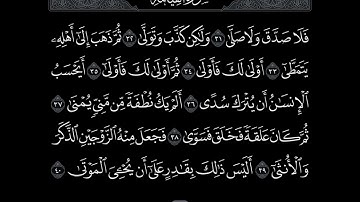 سورة القيامة
فَلَا صَدَّقَ وَلَا صَلَّىٰ ٣١ وَلَٰكِن كَذَّبَ وَتَوَلَّىٰ ٣٢ ثُمَّ ذَهَبَ إِلَىٰٓ أَهْلِهِۦ
يَتَمَطَّىٰٓ ٣٣ أَوْلَىٰ لَكَ فَأَوْلَىٰ ٣٤ ثُمَّ أَوْلَىٰ لَكَ فَأَوْلَىٰٓ ٣٥ أَيَحْسَبُ
ٱلْإِنسَٰنُ أَن يُتْرَكَ سُدًى ٣٦ أَلَمْ يَكُ نُطْفَةً مِّن مَّنِىٍّ يُمْنَىٰ ٣٧
ثُمَّ كَانَ عَلَقَةً فَخَلَقَ فَسَوَّىٰ ٣٨ فَجَعَلَ مِنْهُ ٱلزَّوْجَيْنِ ٱلذَّكَرَ
وَٱلْأُنثَىٰٓ ٣٩ أَلَيْسَ ذَٰلِكَ بِقَٰدِرٍ عَلَىٰٓ أَن يُحْـِۧىَ ٱلْمَوْتَىٰ ٤٠